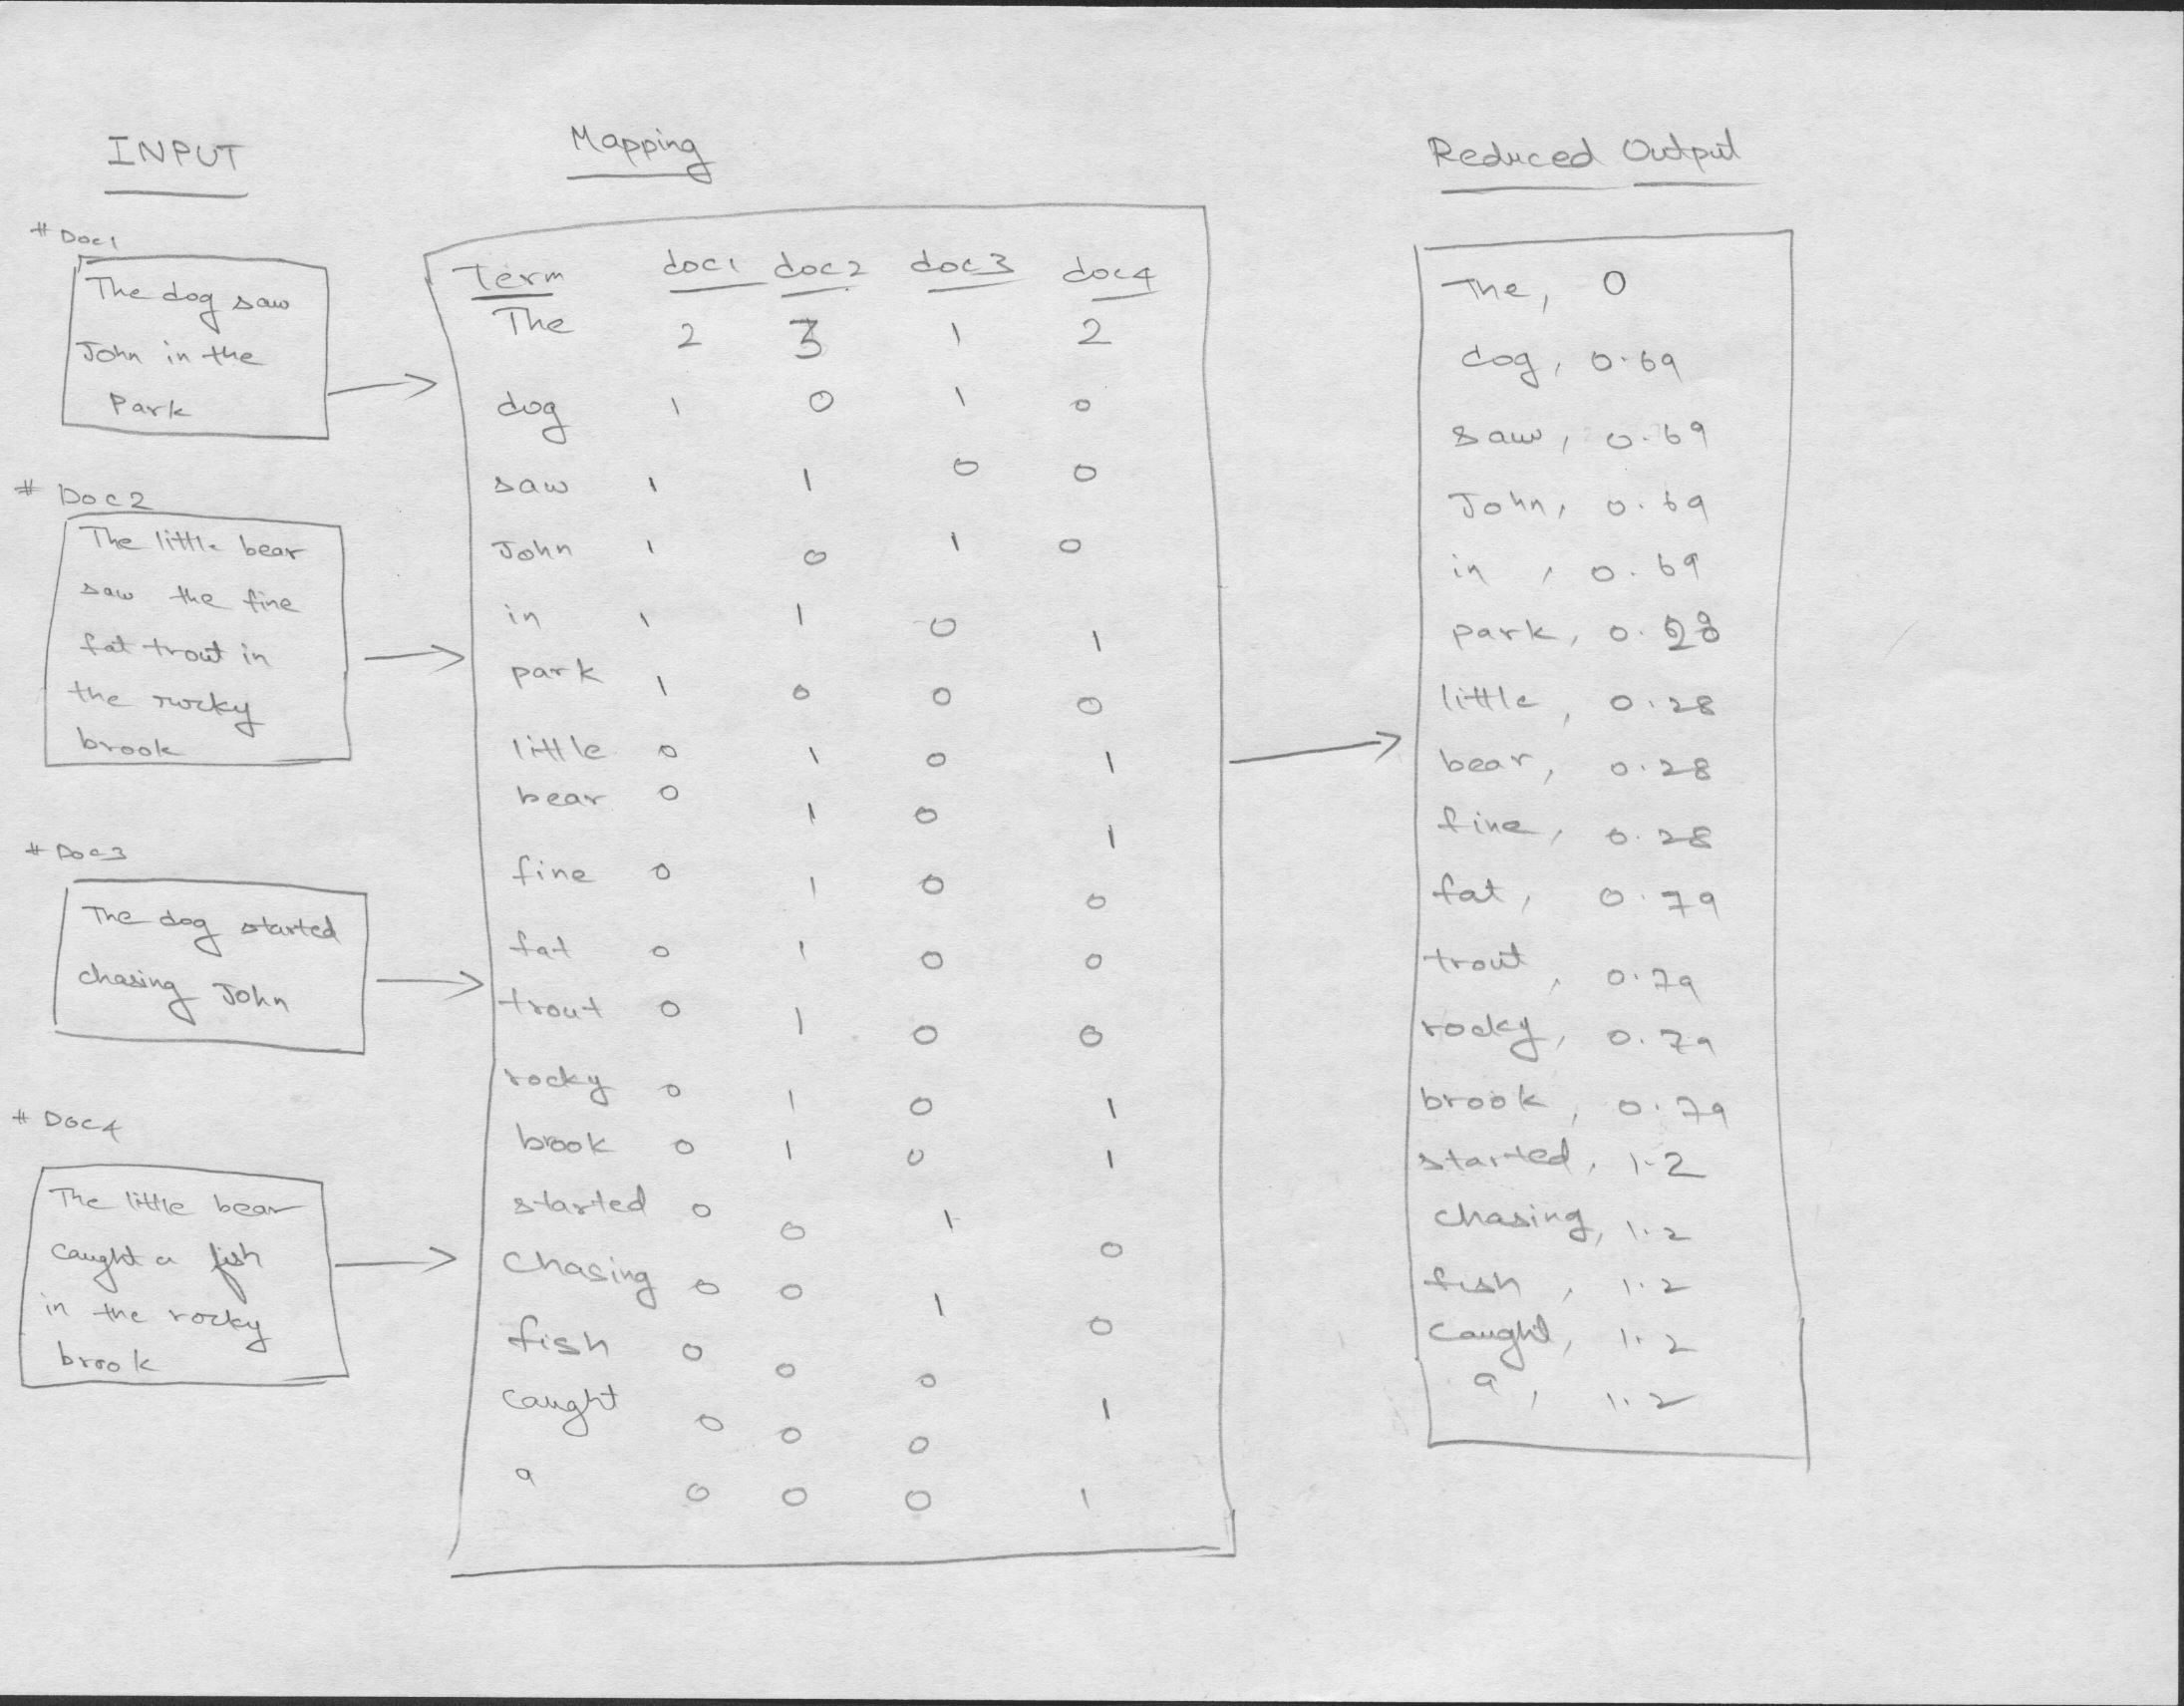 INPUT
# Doc1
The dog saw
John in the
Park
# Doc2
The little bear
saw the fine
fat trout in
the rocky
brook
# Doc3
The dog started
chasing John
# Doc4
The little bear
caught a fish
in the rocky
brook
Mapping
Term doc1 doc2 doc3 doc4
The 2 3 1 2
dog 1 0 1 0
saw 1 1 0 0
John 1 0 1 0
in 1 1 0 1
park 1 0 0 0
little 0 1 0 1
bear 0 1 0 1
fine 0 1 0 0
fat 0 1 0 0
trout 0 1 0 0
rocky 0 1 0 1
brook 0 1 0 1
started 0 0 1 0
Chasing 0 0 1 0
fish 0 0 0 1
Caught 0 0 0
a 0 0 0 1
Reduced Output
The, 0
dog, 0.69
saw, 0.69
John, 0.69
in, 0.69
park, 0.28
little, 0.28
bear, 0.28
fine, 0.28
fat, 0.79
trout, 0.79
rocky, 0.79
brook, 0.79
started, 1.2
chasing, 1.2
fish, 1.2
Caught, 1.2
a, 1.2